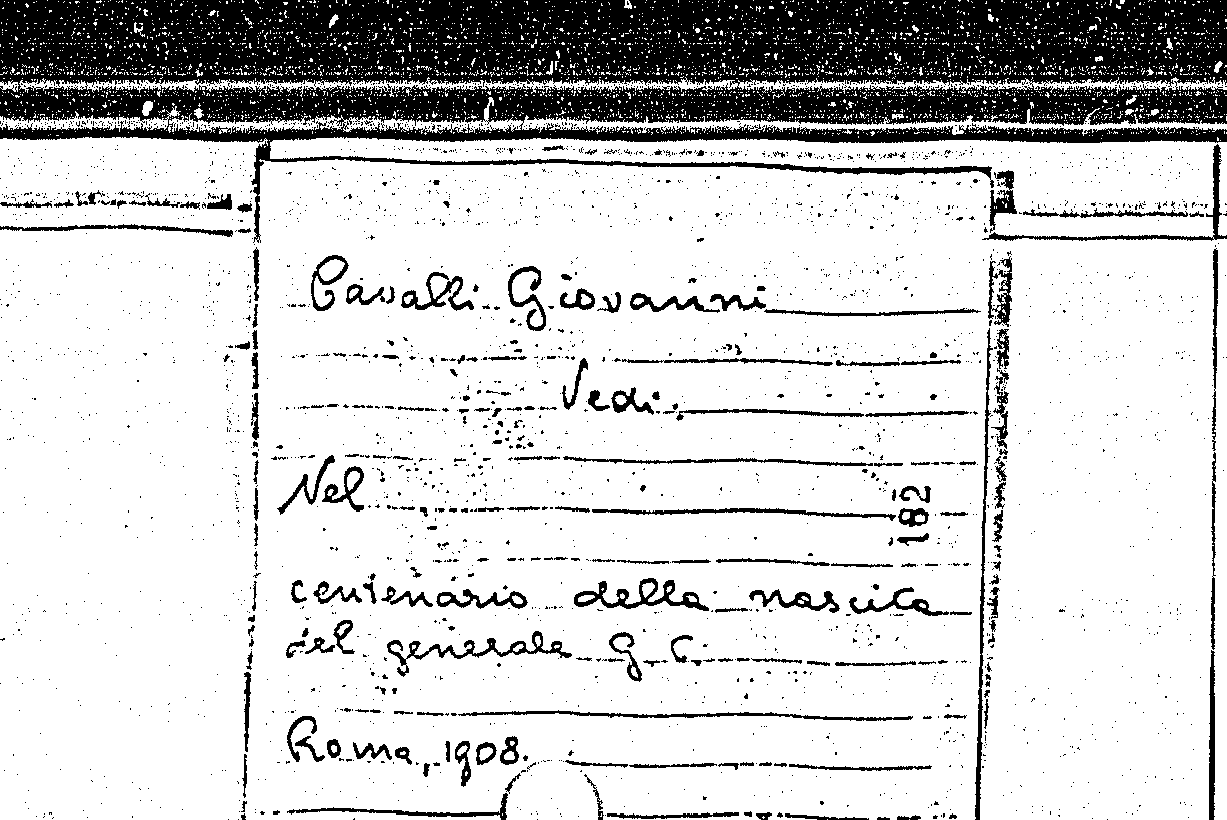 Cavalli Giovanni
Vedi:
Nel
182
centenario della nascita
del generale G. C.
Roma, 1908.